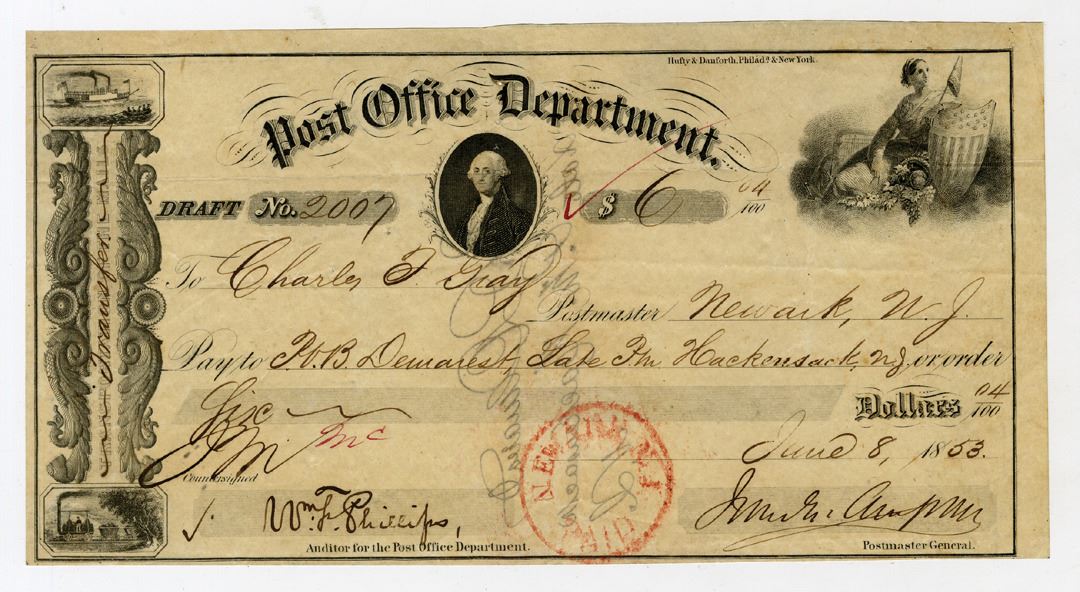 Hufty & Danforth, Philad.ᵃ & New York.
Post Office Department.
DRAFT No. 2007
$ 6 04/100
To Charles T. Gray
Postmaster Newark, N. J.
Pay to P.V.B. Demarest, Late P.M. Hackensack, N.J. or order
Six Dollars 04/100
June 8, 1853.
Countersigned
Wm. F. Phillips,
Auditor for the Post Office Department.
Postmaster General.
Transfer
NEWARK N.J.
PAID